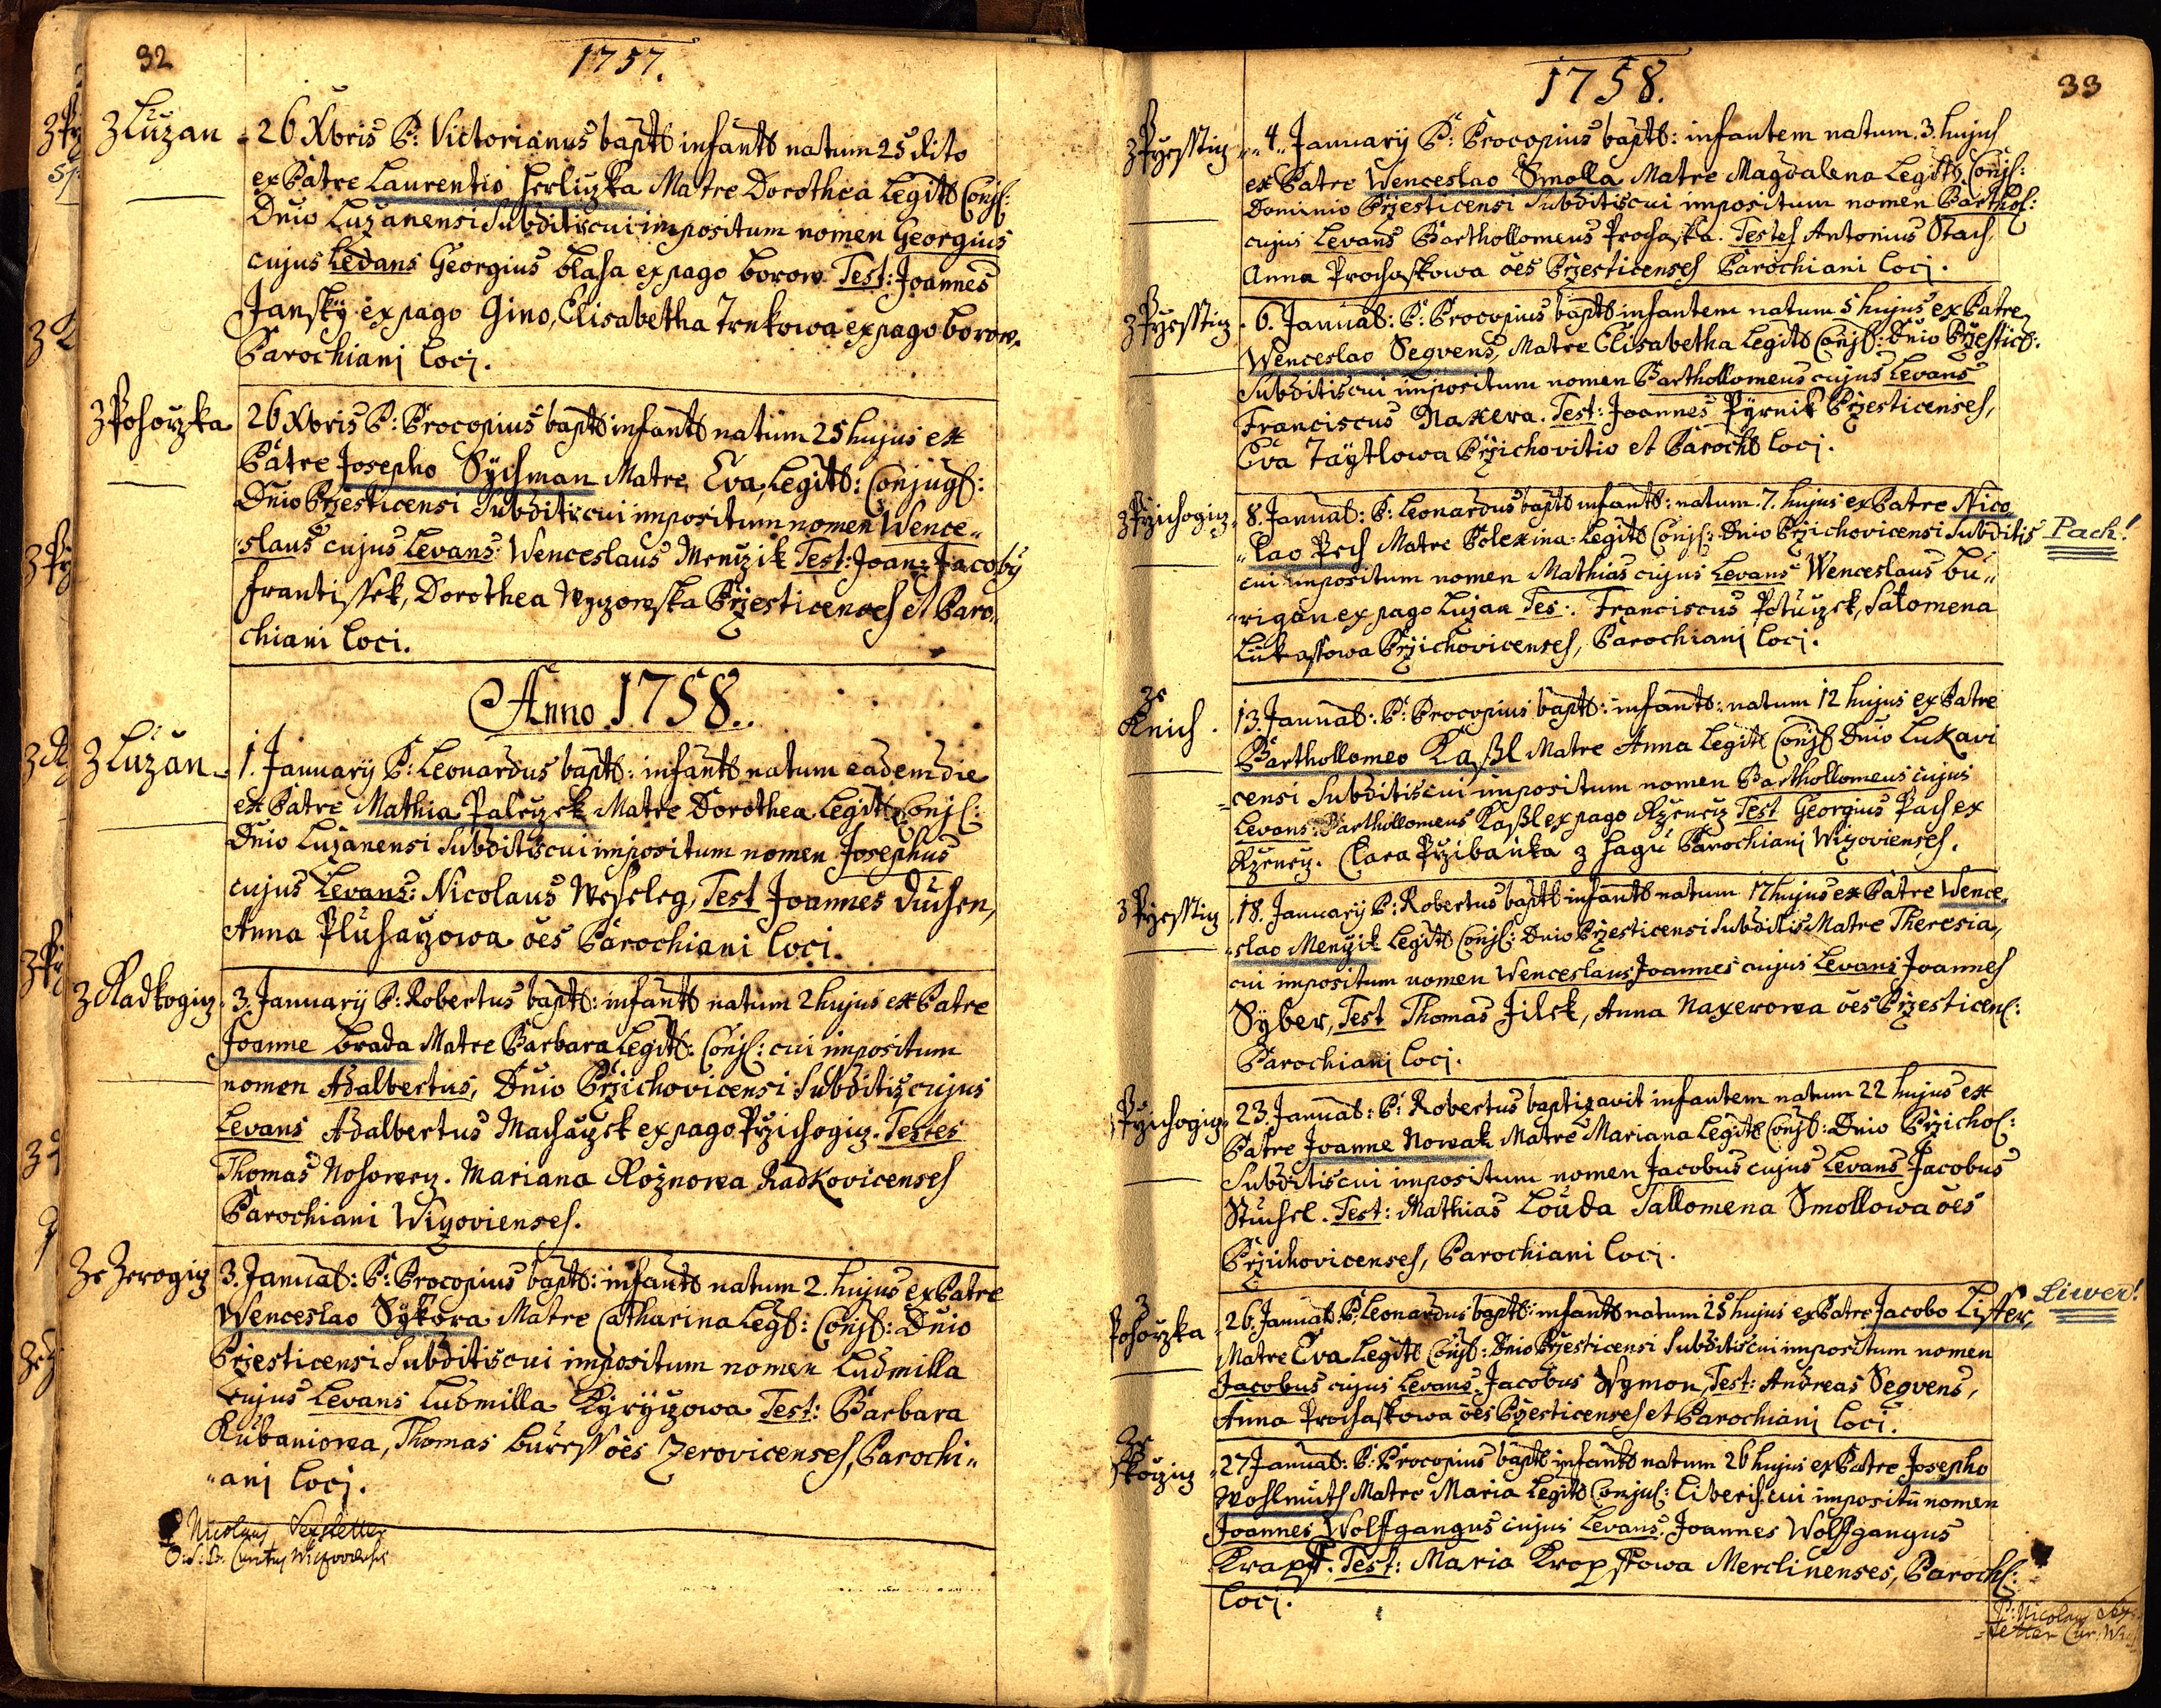 32
1757.
z Lužan
26 Xbris P: Victorianus bapt: infant: natum 25 dito
ex Patre Laurentio Herlizka Matre Dorothea Legit: Conj:
Dnio Lužanensi Subditis cui impositum nomen Georgius
cujus Levans Georgius blaha ex pago borow. Test: Joannes
Janský ex pago Gino, Elisabetha Trnkowa ex pago borow.
Parochianj locj.
z Pohorzka
26 Xbris P: Procopius bapt: infant: natum 25 hujus ex
Patre Josepho Sýchman Matre Eva, Legit: Conjug:
Dnio Przesticensi Subditis cui impositum nomen Wence„
„slaus cujus Levans: Wenceslaus Menzik Test: Joan: Jacobj
Frantissek, Dorothea Przesticenses et Paro„
chiani loci.
Anno 1758.
z Lužan
1. Januarij P: Leonardus bapt: infant: natum eadem die
ex Patre Mathia Palczek Matre Dorothea Legit: Conj:
Dnio Lužanensi Subditis cui impositum nomen Josephus
cujus Levans: Nicolaus Weseleg, Test Joannes Duchen,
Anna Pluhazowa oes Parochiani loci.
z Radkogicz
3. Januarij P: Robertus bapt: infant: natum 2 hujus ex Patre
Joanne Brada Matre Barbara Legit: Conj: cui impositum
nomen Adalbertus, Dnio Przichovicensi Subditis cujus
Levans Adalbertus Machaczek ex pago Przichogicz. Testes
Thomas Nohowecz. Mariana Rožnowa Radkovicenses
Parochiani Wizovienses.
Ze Zerogicz
3. Januar: P: Procopius bapt: infant: natum 2. hujus ex Patre
Wenceslao Sýkora Matre Catharina Leg: Conj: Dnio
Przesticensi Subditis cui impositum nomen Ludmilla
cujus Levans Ludmilla Kýrýczowa Test: Barbara
Kubaniowa, Thomas Buress oes Zerovicenses, Parochi„
„anj locj.
P Nicolaus Sexstetter
33
1758.
z Przessticz
4. Januarij P: Procopius bapt: infantem natum. 3. hujus
ex Patre Wenceslao Smolla Matre Magdalena Legit: Conj:
Dominio Przesticensi Subditis cui impositum nomen Barthol:
cujus Levans Barthollomeus Prochaska. Testes Antonius Stach,
Anna Prochaskowa oes Przesticenses Parochiani locj.
z Przessticz
6. Januar: P: Procopius bapt: infantem natum 5 hujus ex Patre
Wenceslao Segvens, Matre Elisabetha Legit: Conj: Dnio Przestic:
Subditis cui impositum nomen Barthollomeus cujus Levans
Franciscus Naxera. Test: Joannes Pýrnik Przesticenses,
Eva Taýtlowa Przichovitio et Paroch: locj.
z Przichogicz
8. Januar: P: Leonardus bapt: infant: natum. 7. hujus ex Patre Nico„
„lao Pech Matre Polexina Legit: Conj: Dnio Przichovicensi Subditis
Pach!
cui impositum nomen Mathias cujus Levans Wenceslaus bu„
„rigan ex pago Lužan Tes: Franciscus Potuczek, Salomena
Lukassowa Przichovicenses, Parochianj locj.
ze
Knich
13. Januar: P: Procopius bapt: infant: natum 12 hujus ex Patre
Barthollomeo Kaßl Matre Anna Legit: Conj: Dnio Lukavi
„censi Subditis cui impositum nomen Barthollomeus cujus
Levans: Barthollomeus Kaßl ex pago Rzenecz Test Georgius Pach ex
Rzenecz. Clara Przibanka z hagu Parochianj Wizovienses.
z Przessticz
18. Januarij P: Robertus bapt: infant: natum 17 hujus ex Patre Wence„
„slao Menzik Legit: Conj: Dnio Przesticensi Subditis Matre Theresia,
cui impositum nomen Wenceslaus Joannes cujus Levans Joannes
Sýber, Test Thomas Jilek, Anna Naxerowa oes Przesticen:
Parochianj locj.
Przichogicz
23. Januar: P: Robertus baptizavit infantem natum 22 hujus ex
Patre Joanne Nowak Matre Mariana Legit: Conj: Dnio Przichos:
Subditis cui impositum nomen Jacobus cujus Levans Jacobus
Stuchel. Test: Mathias Louda Sallomena Smollowa oes
Przichovicenses, Parochiani locj.
z
Pohorzka
26. Januar: P: Leonardus bapt: infant: natum 25 hujus ex Patre Jacobo Liffer,
Liwer!
Matre Eva Legit: Conj: Dnio Przesticensi Subditis cui impositum nomen
Jacobus cujus Levans. Jacobus Sýmon, Test: Andreas Segvens,
Anna Prochaskowa oes Przesticenses et Parochianj loci.
Ze
Skoczicz
27 Januar: P: Procopius bapt: infant: natum 26 hujus ex Patre Josepho
Wohlmuth Matre Maria Legit: Conju: Liberis: cui impositu nomen
Joannes Wolffgangus cujus Levans. Joannes Wolffgangus
Krapff. Test: Maria Krapffowa Merclinenses, Paroch:
locj.
P: Nicolaus Sex„
„stetter Cur: Wiz